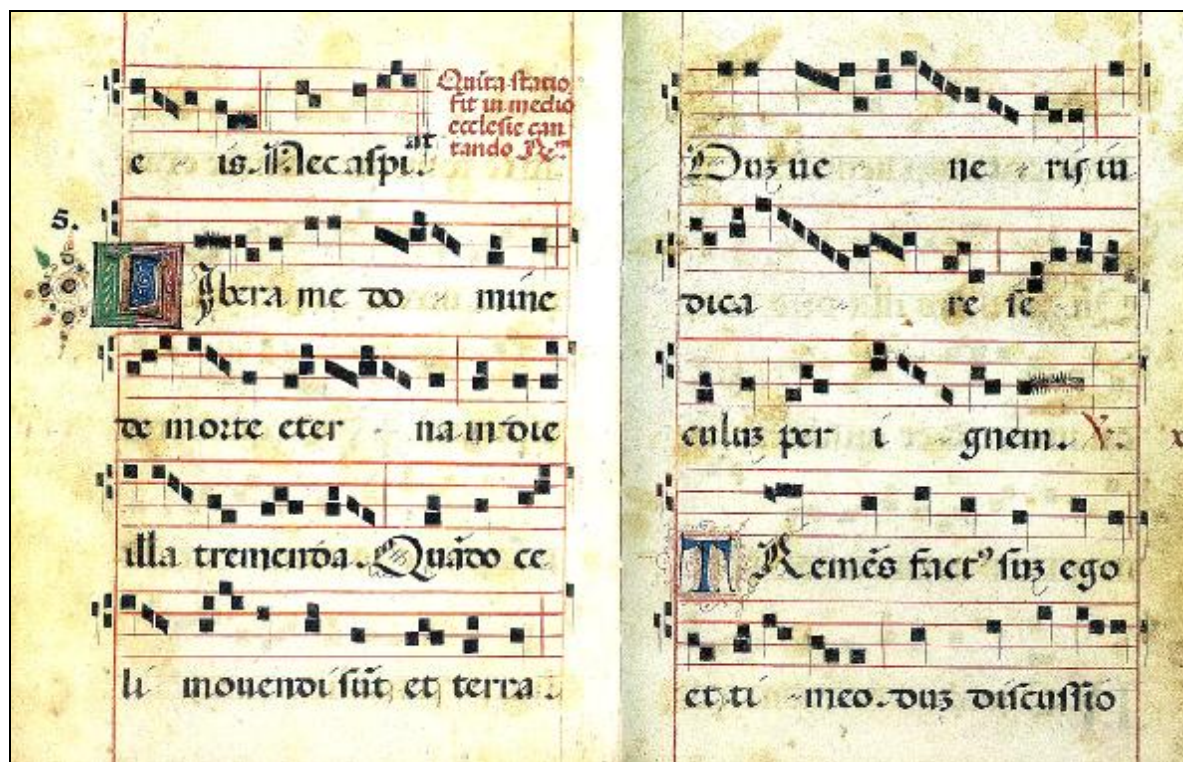 e is. Nec aspi. at
Quīta statio
fit in medio
ecclesie can
tando
5.
LIbera me do mine
de morte eter na in die
illa tremenda. Quādo ce
li mouendi sūt et terra.
Duz ue ne ris iu
dica re se
culuz per i gnem. ℣. x
TRemēs fact⁹ suz ego
et ti meo. duz discussio